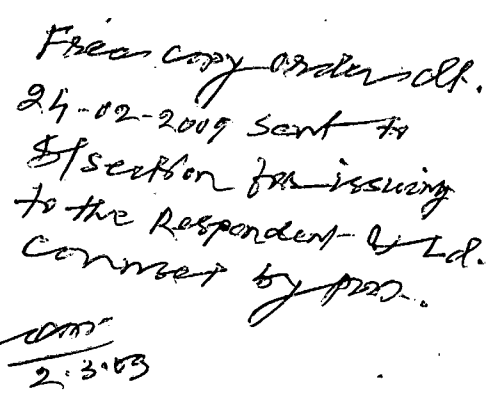 Free copy order dt.
24-02-2009 sent to
section for issuing
to the Respondent & Ld.
Counsel by
2.3.09